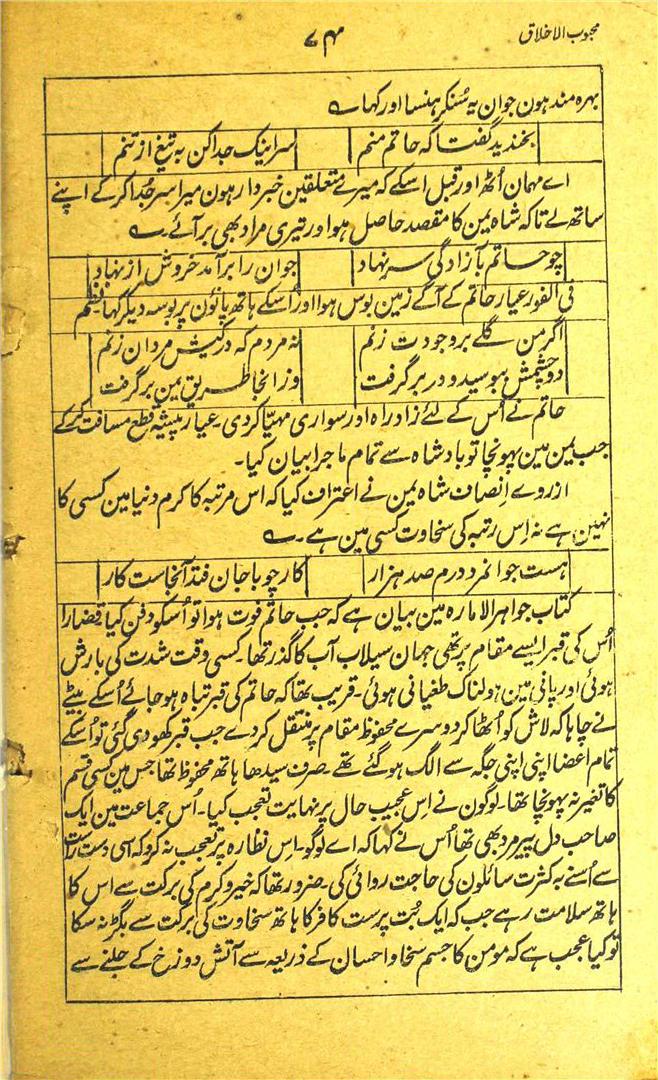 محبوب الاخلاق
۷۴
بہرہ مند ہون جوان یہ سُنکر ہنسا اور کہا ؎
بخندید گفتا کہ حاتم منم
سر اینک جدا کن بہ تیغ از تنم
اے مہمان اُٹھ اور قبل اسکے کہ میرے متعلقین خبردار ہون میرا سر جُدا کر کے اپنے
ساتھ لے تاکہ شاہ یمن کا مقصد حاصل ہو اور تیری مراد بھی بر آئے۔ ؎
چو حاتم بآزادگی سر نہاد
جوان را برآمد خروش از نہاد
فی الفور عیار حاتم کے آگے زمین بوس ہوا اور اُسکے ہاتھ پائون پر بوسہ دیکر کہا۔ نظم
اگر من گلے بر وجودت زنم
نہ مردم کہ در کیش مردان زنم
دو چشمش ببوسید و در بر گرفت
وز انجا طریق یمن بر گرفت
حاتم نے اُس کے لئے زاد راہ اور سواری مہیّا کردی۔ عیار پیشہ قطع مسافت کر کے
جب یمن مین پہونچا تو بادشاہ سے تمام ماجرا بیان کیا۔
از روے انصاف شاہ یمن نے اعتراف کیا کہ اس مرتبہ کا کرم دنیا مین کسی کا
نہین ہے نہ اِس رتبہ کی سخاوت کسی مین ہے۔ ؎
ہست جوانمرد درم صد ہزار
کار چو با جان فتد آنجاست کار
کتاب جواہر الامارہ مین بیان ہے کہ جب حاتم فوت ہوا تو اُسکو دفن کیا قضارا
اُس کی قبر ایسے مقام پر تھی جہان سیلاب آب کا گذر تھا۔ کسی وقت شدت کی بارش
ہوئی اور پانی مین ہولناک طغیانی ہوئی۔ قریب تھا کہ حاتم کی قبر تباہ ہوجائے اُسکے بیٹے
نے چاہا کہ لاش کو اُٹھا کر دوسرے محفوظ مقام پر منتقل کردے جب قبر کھودی گئی تو اُسکے
تمام اعضا اپنی اپنی جگہ سے الگ ہو گئے تھے۔ صرف سیدھا ہاتھ محفوظ تھا جس مین کسی قسم
کا تغیر نہ پہونچا تھا۔ لوگون نے اِس عجیب حال پر نہایت تعجب کیا۔ اُس جماعت مین ایک
صاحب دل پیر مرد بھی تھا اُس نے کہا کہ اے لوگو۔ اِس نظارہ پر تعجب نہ کرو کہ اسی دست راست
سے اُسنے بہ کثرت سائلون کی حاجت روائی کی۔ ضرور تھا کہ خیر و کرم کی برکت سے اس کا
ہاتھ سلامت رہے جب کہ ایک بُت پرست کافر کا ہاتھ سخاوت کی برکت سے بگڑ نہ سکا
تو کیا عجب ہے کہ مومن کا جسم سخا و احسان کے ذریعہ سے آتش دوزخ کے جلنے سے